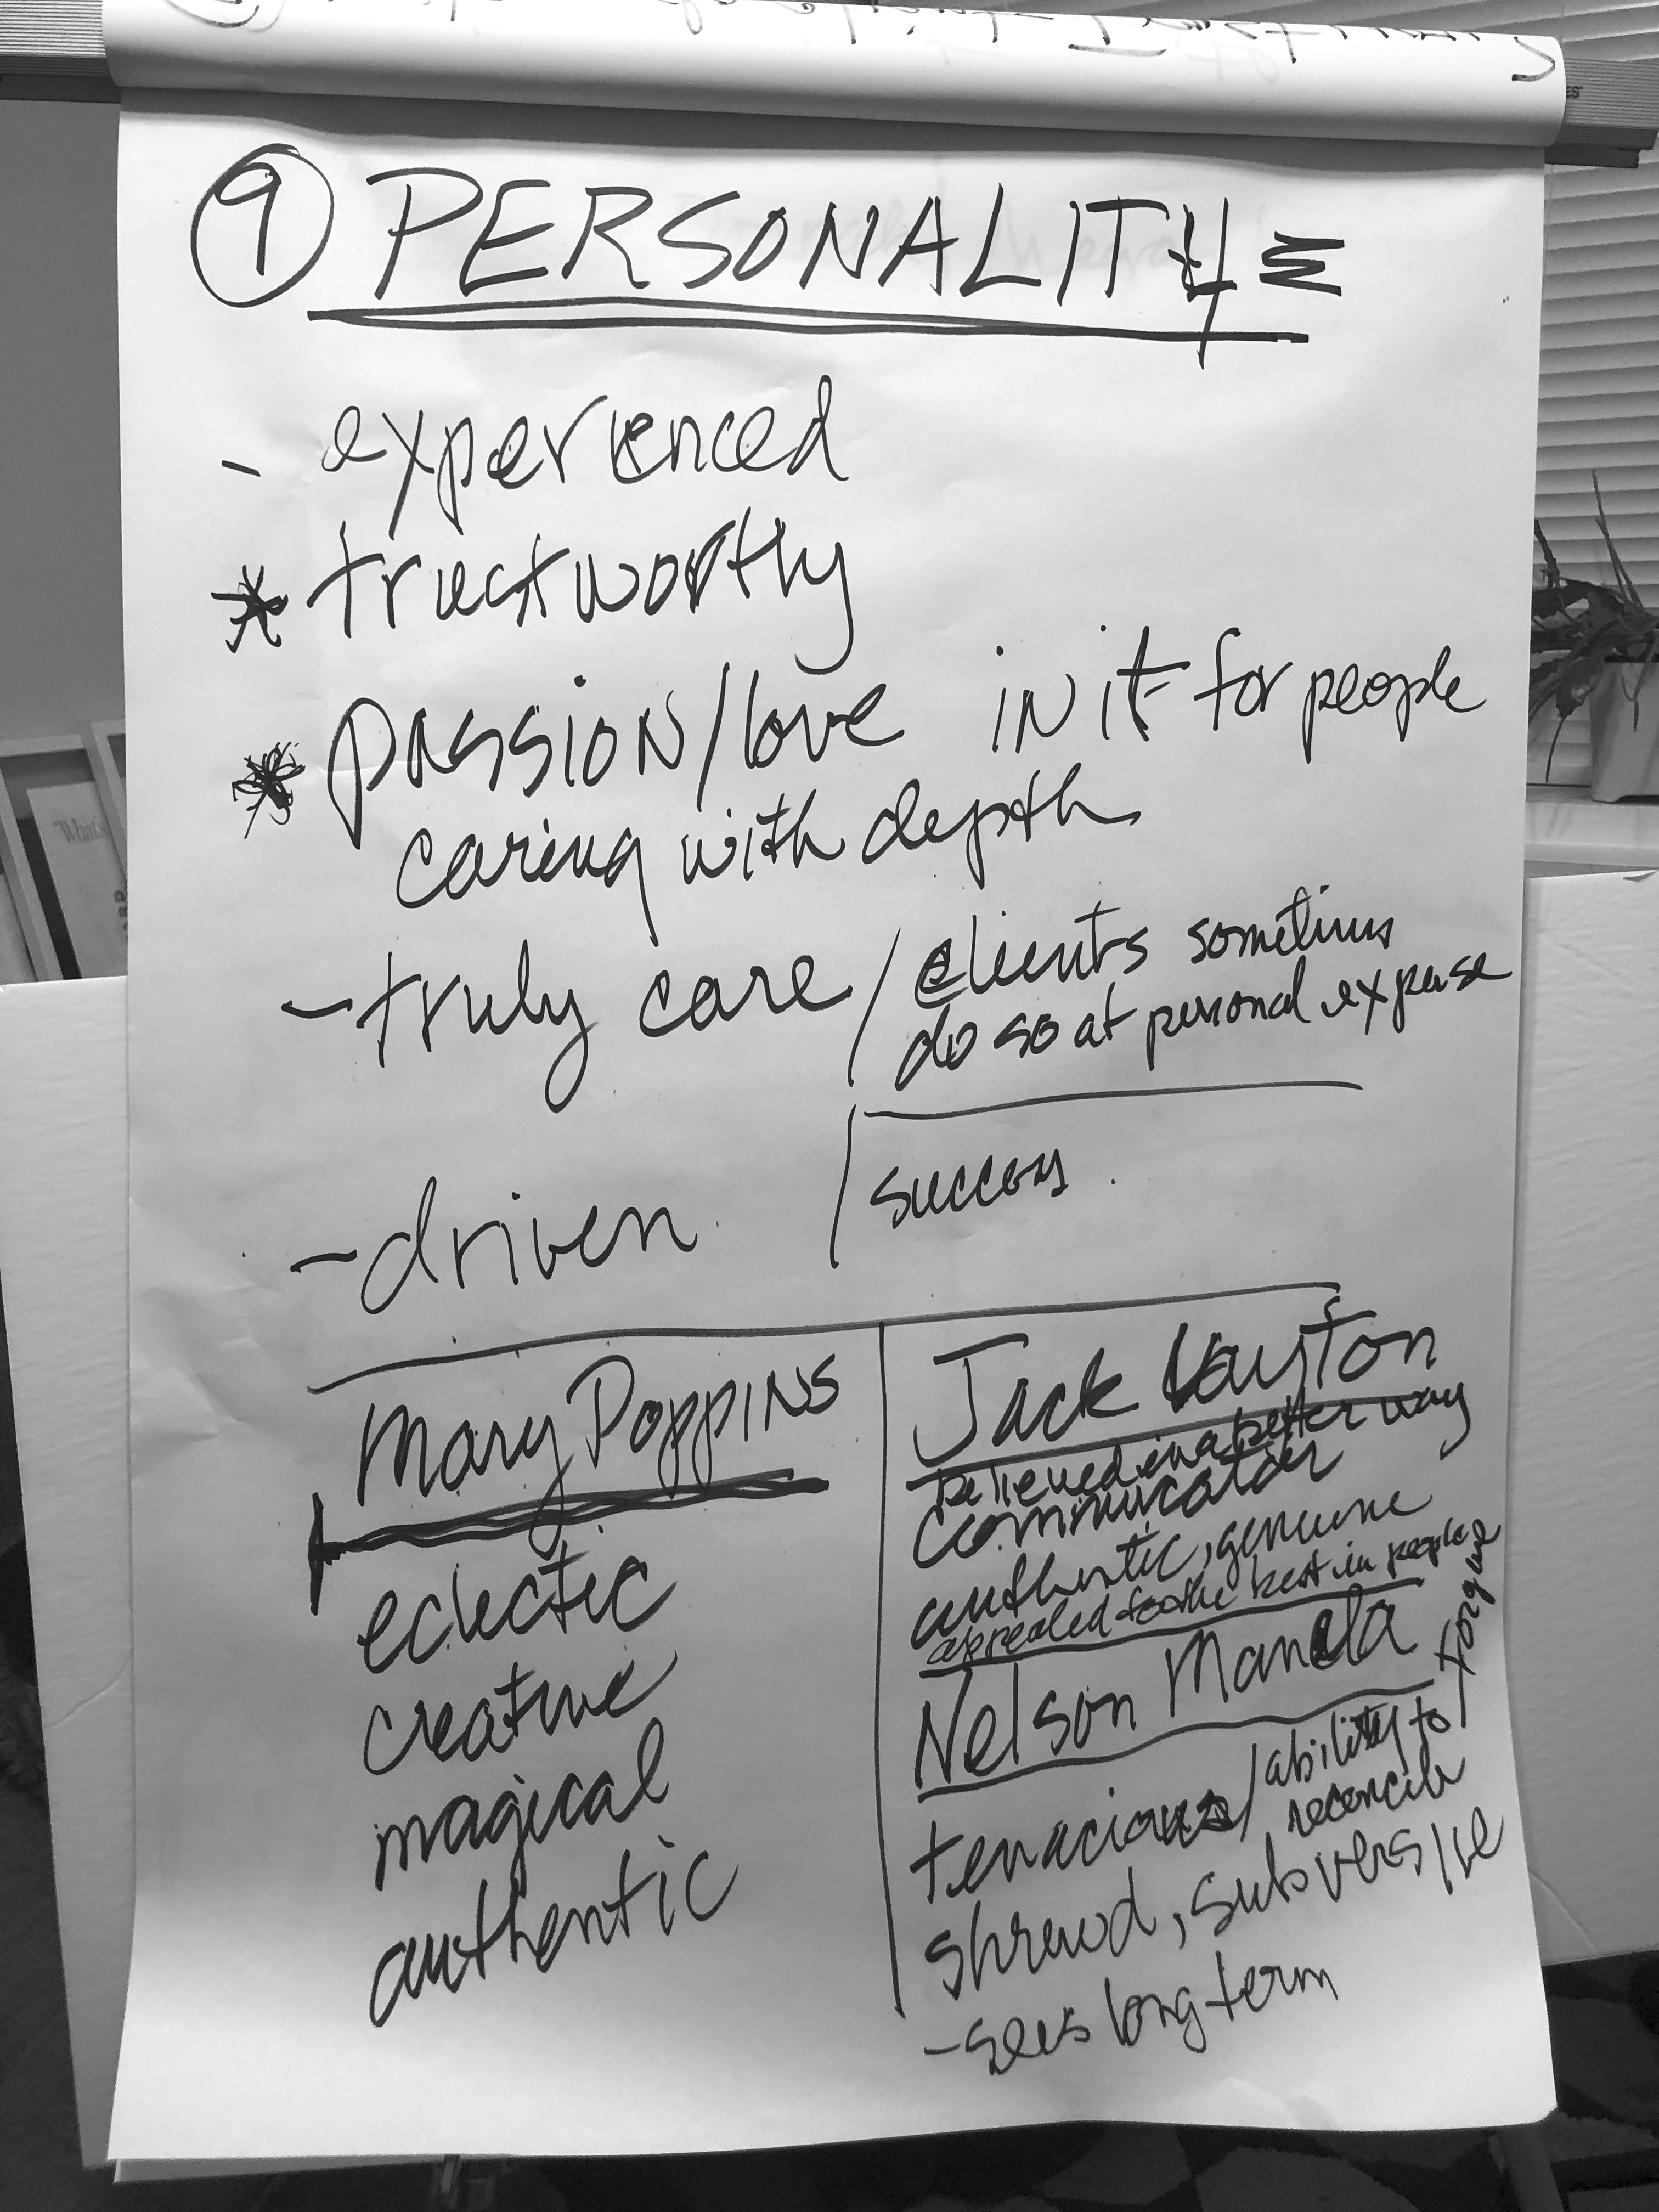 9 PERSONALITY
- experienced
* trustworthy
* passion/love in it for people
caring with depth
- truly care / clients sometimes
do so at personal expense
- driven / success.
Mary Poppins
eclectic
creative
magical
authentic
Jack Layton
believed in a better way
communicator
authentic, genuine
appealed to the best in people
Nelson Mandela
tenacious / ability to / forgive
reconcile
shrewd, subversive
- sees long term
What's